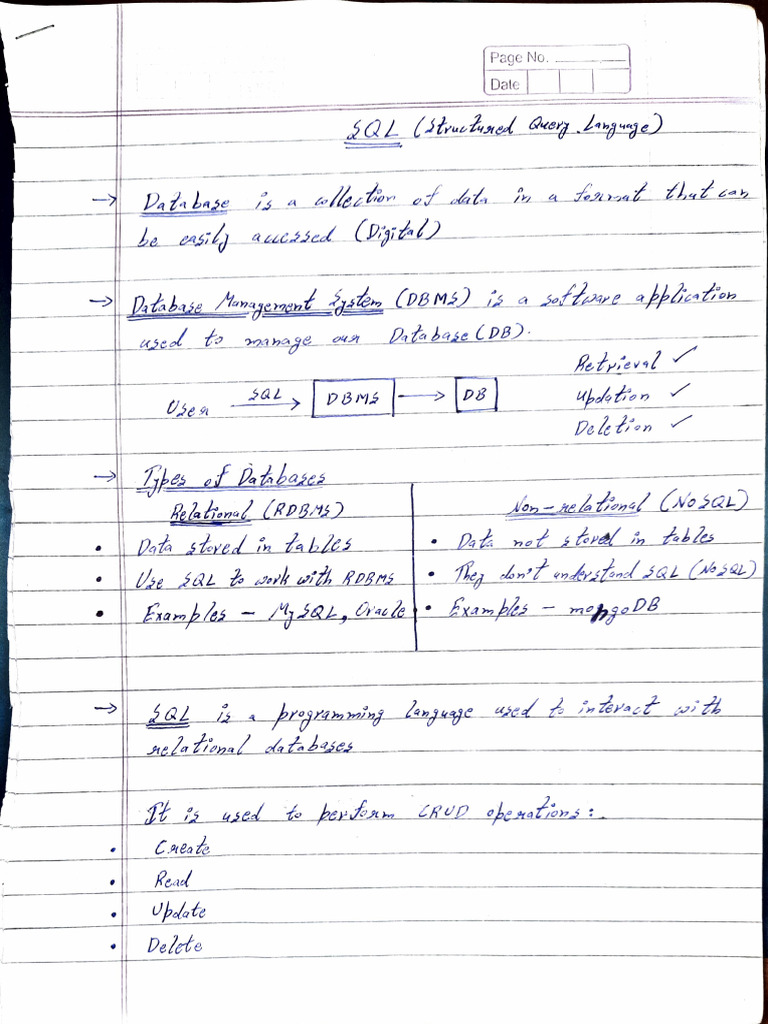 Page No.
Date
SQL (Structured Query Language)
→ Database is a collection of data in a format that can
be easily accessed (Digital)
→ Database Management System (DBMS) is a software application
used to manage our Database (DB).
Retrieval ✓
User SQL → DBMS → DB Updation ✓
Deletion ✓
→ Types of Databases
Relational (RDBMS) Non-relational (NoSQL)
• Data stored in tables • Data not stored in tables
• Use SQL to work with RDBMS • They don't understand SQL (NoSQL)
• Examples - MySQL, Oracle • Examples - mongoDB
→ SQL is a programming language used to interact with
relational databases
It is used to perform CRUD operations:
• Create
• Read
• Update
• Delete